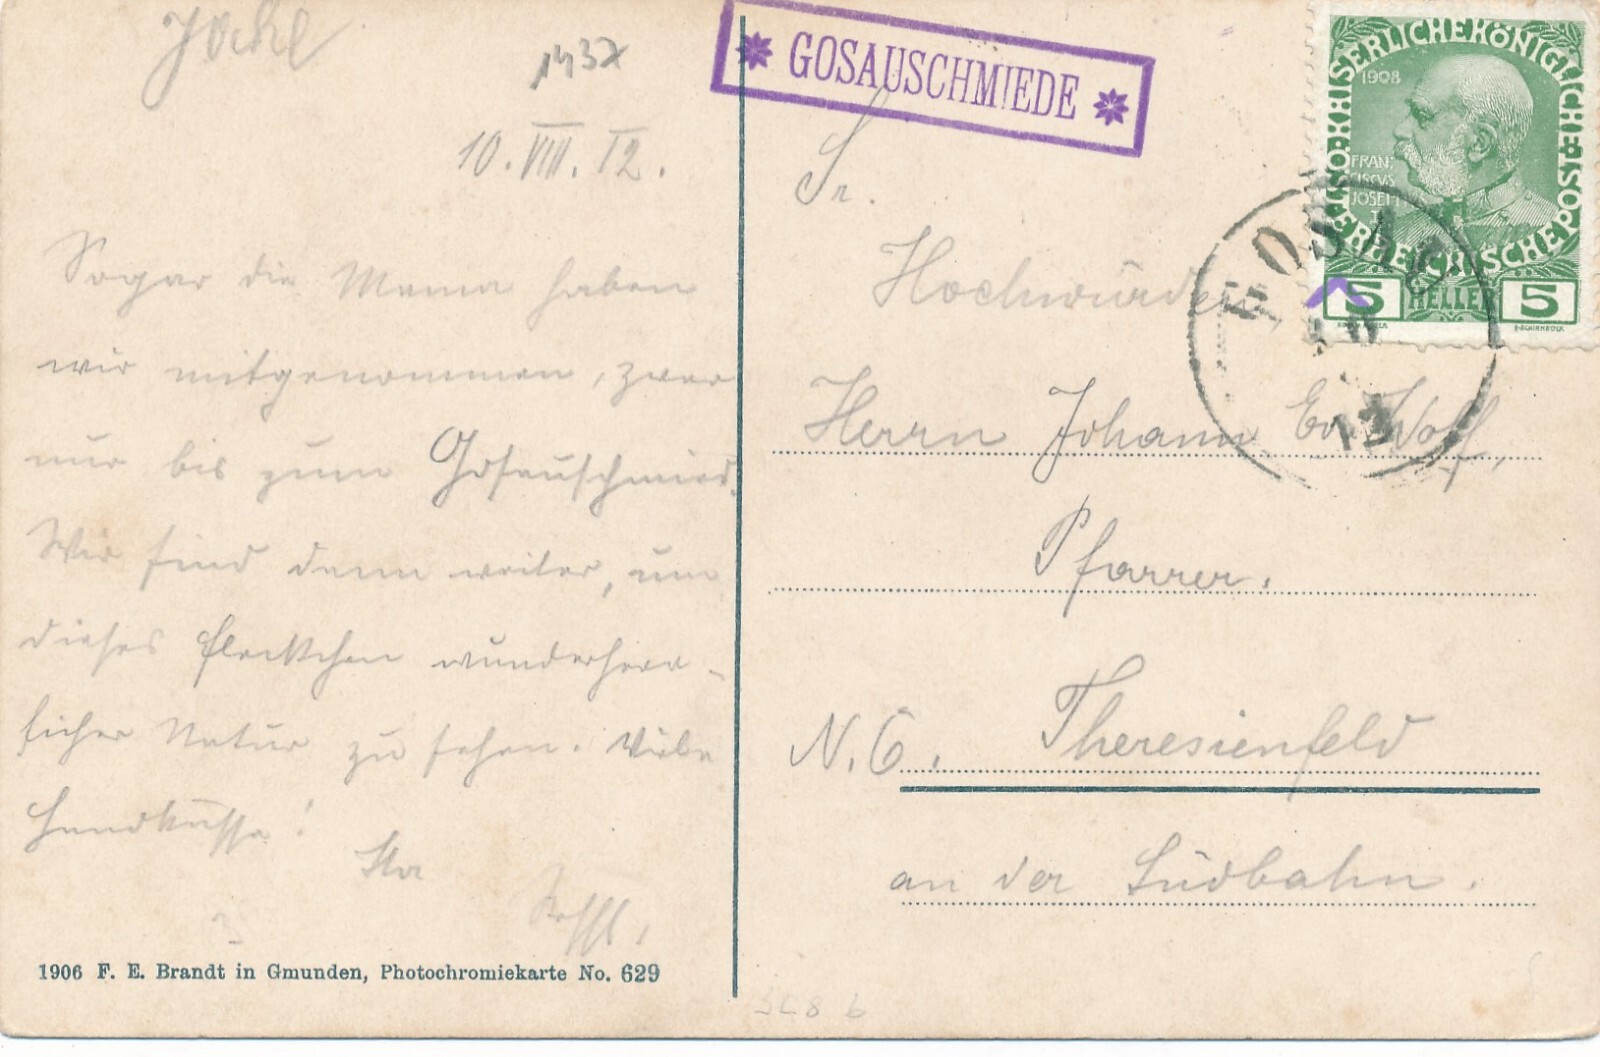 Jockl
1437
10. VIII. 12.
Sogar die Mama haben
wir mitgenommen, zwar
nur bis zum Gosauschmied.
Wir sind dann weiter, um
dieses Fleckchen wunderherr-
licher Natur zu sehen. Viele
Handküsse!
Ihr
1906 F. E. Brandt in Gmunden, Photochromiekarte No. 629
* GOSAUSCHMIEDE *
KAISERLICHE KÖNIGLICHE ÖSTERREICHISCHE POST
1908
FRAN
CISCVS
JOSEPH
I
5 HELLER 5
GOSAU
10
12
Sr.
Hochwürden
Herrn Johann Ev. Wolf,
Pfarrer.
N.Ö. Theresienfeld
an der Südbahn.